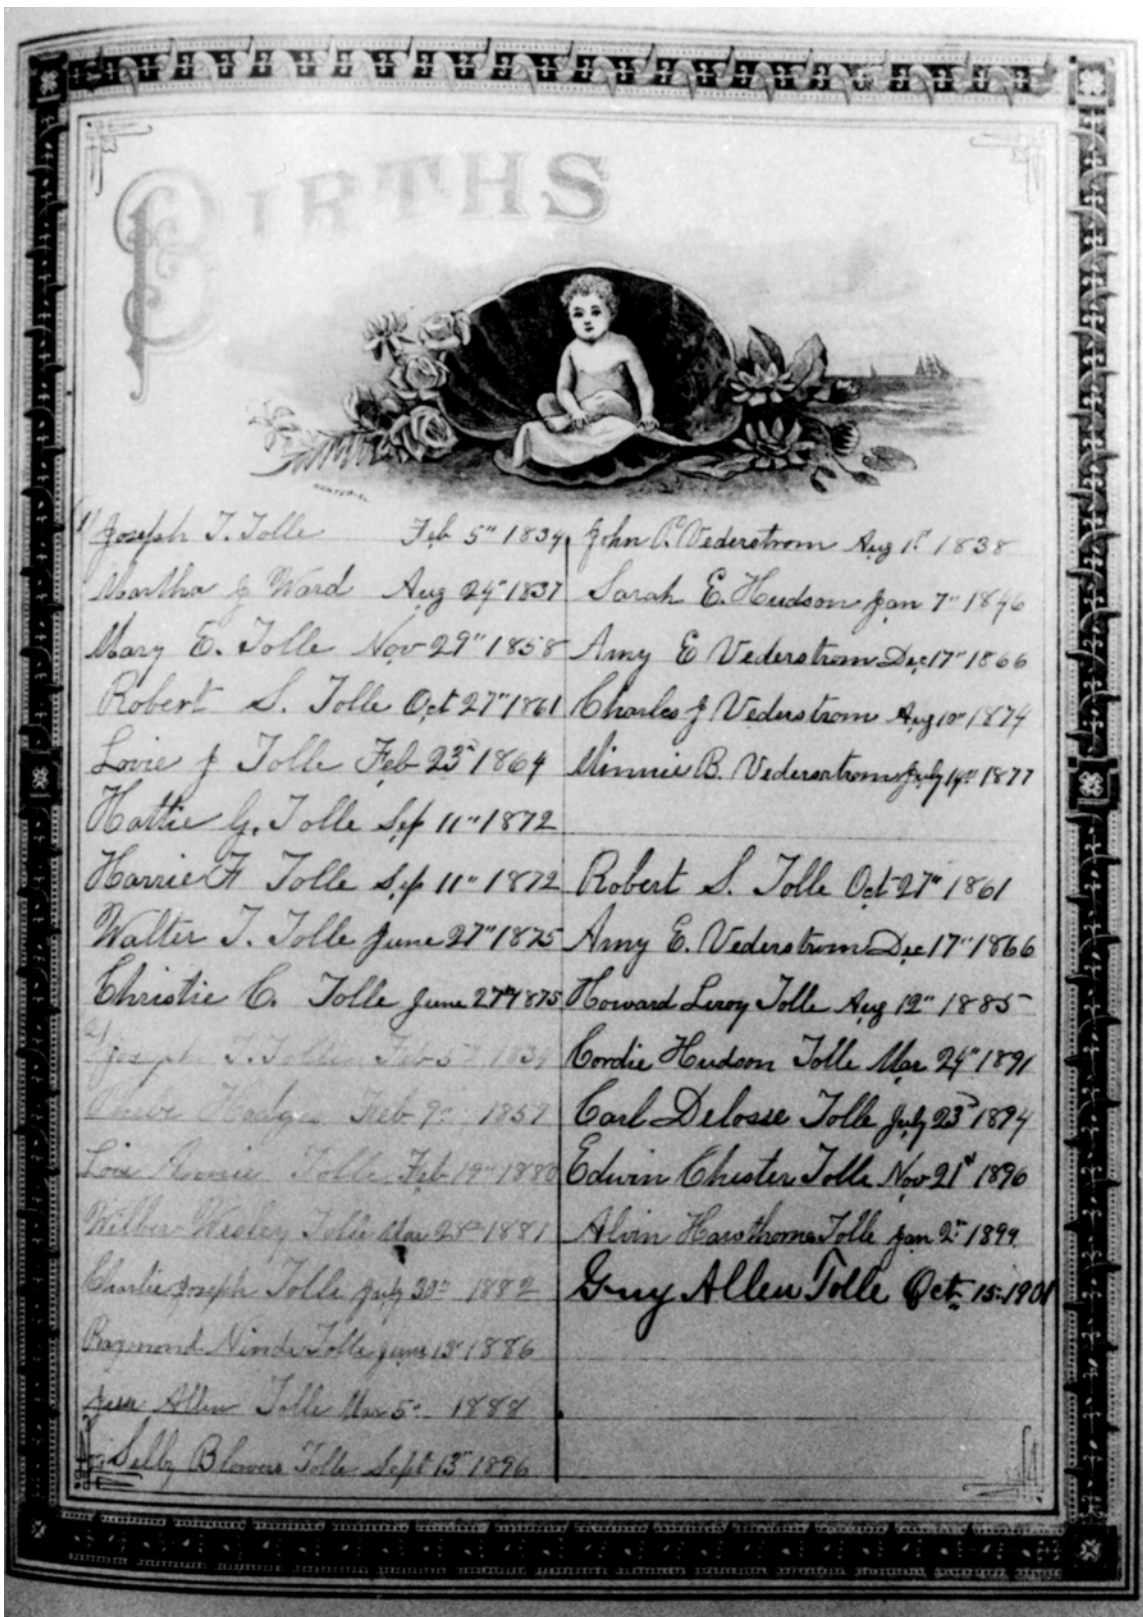 BIRTHS
1/ Joseph T. Tolle Feb 5" 1834
Martha J Ward Aug 24" 1837
Mary E. Tolle Nov 29" 1858
Robert S. Tolle Oct 27" 1861
Lovie J Tolle Feb 23d 1864
Hattie G. Tolle Sep 11" 1872
Harrie F Tolle Sep 11" 1872
Walter T. Tolle June 27" 1875
Christie C. Tolle June 27th 1875
2/
Joseph T. Tolle Feb 5" 1834
Hodges Feb 9" 1857
Lois Annie Tolle Feb 19" 1880
Wilber Wesley Tolle Mar 28" 1881
Charlie Joseph Tolle July 30" 1882
Raymond Ninde Tolle June 13" 1886
Jesse Allen Tolle Mar 5" 1888
Selby Blowers Tolle Sept 13" 1896
John P. Vederstrom Aug 1st 1838
Sarah E. Hudson Jan 7" 1846
Amy E Vederstrom Dec 17" 1866
Charles J Vederstrom Aug 10" 1874
Minnie B. Vederstrom July 14" 1877
Robert S. Tolle Oct 27" 1861
Amy E. Vederstrom Dec 17" 1866
Howard Leroy Tolle Aug 12" 1885
Cordie Hudson Tolle Mar 24" 1891
Carl Delosse Tolle July 23d 1894
Edwin Chester Tolle Nov 21st 1896
Alvin Hawthorne Tolle Jan 2" 1899.
Guy Allen Tolle Oct. 15" 1901